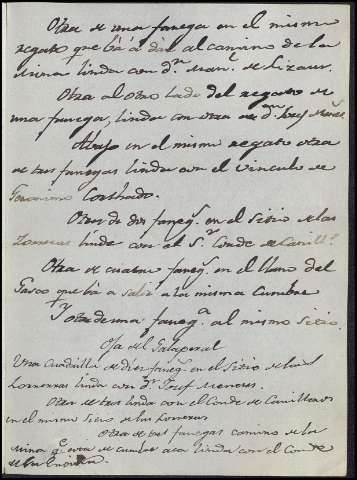 Otra de una fanega en el mismo
regato que bá á dar al camino de la
Mina linda con dn Man.l de Lizaur.
Otra al otro lado del regato de
una fanega, linda con otra de dn Josef
Abajo en el mismo regato otra
de tres fanegas linda con el vinculo de
Geronimo Corchado.
Otra de dos faneg.s en el Sitio de las
linda con el S.r Conde de Canill.s
Otra de cuatro faneg.s en el llano del
que bá a salir a la misma Cumbre
Y otra de una faneg.a al mismo Sitio.
Oja del Galaperal
Una Cuadrilla de diez faneg.s en el Sitio de las
Lorreras linda con dn Josef Meneses.
Otra de tres linda con el Conde de Canilleros
en el mismo Sitio de las Lorreras
Otra de tres fanegas camino de la
Mina q.e de cumbre linda con el Conde
de la Encina